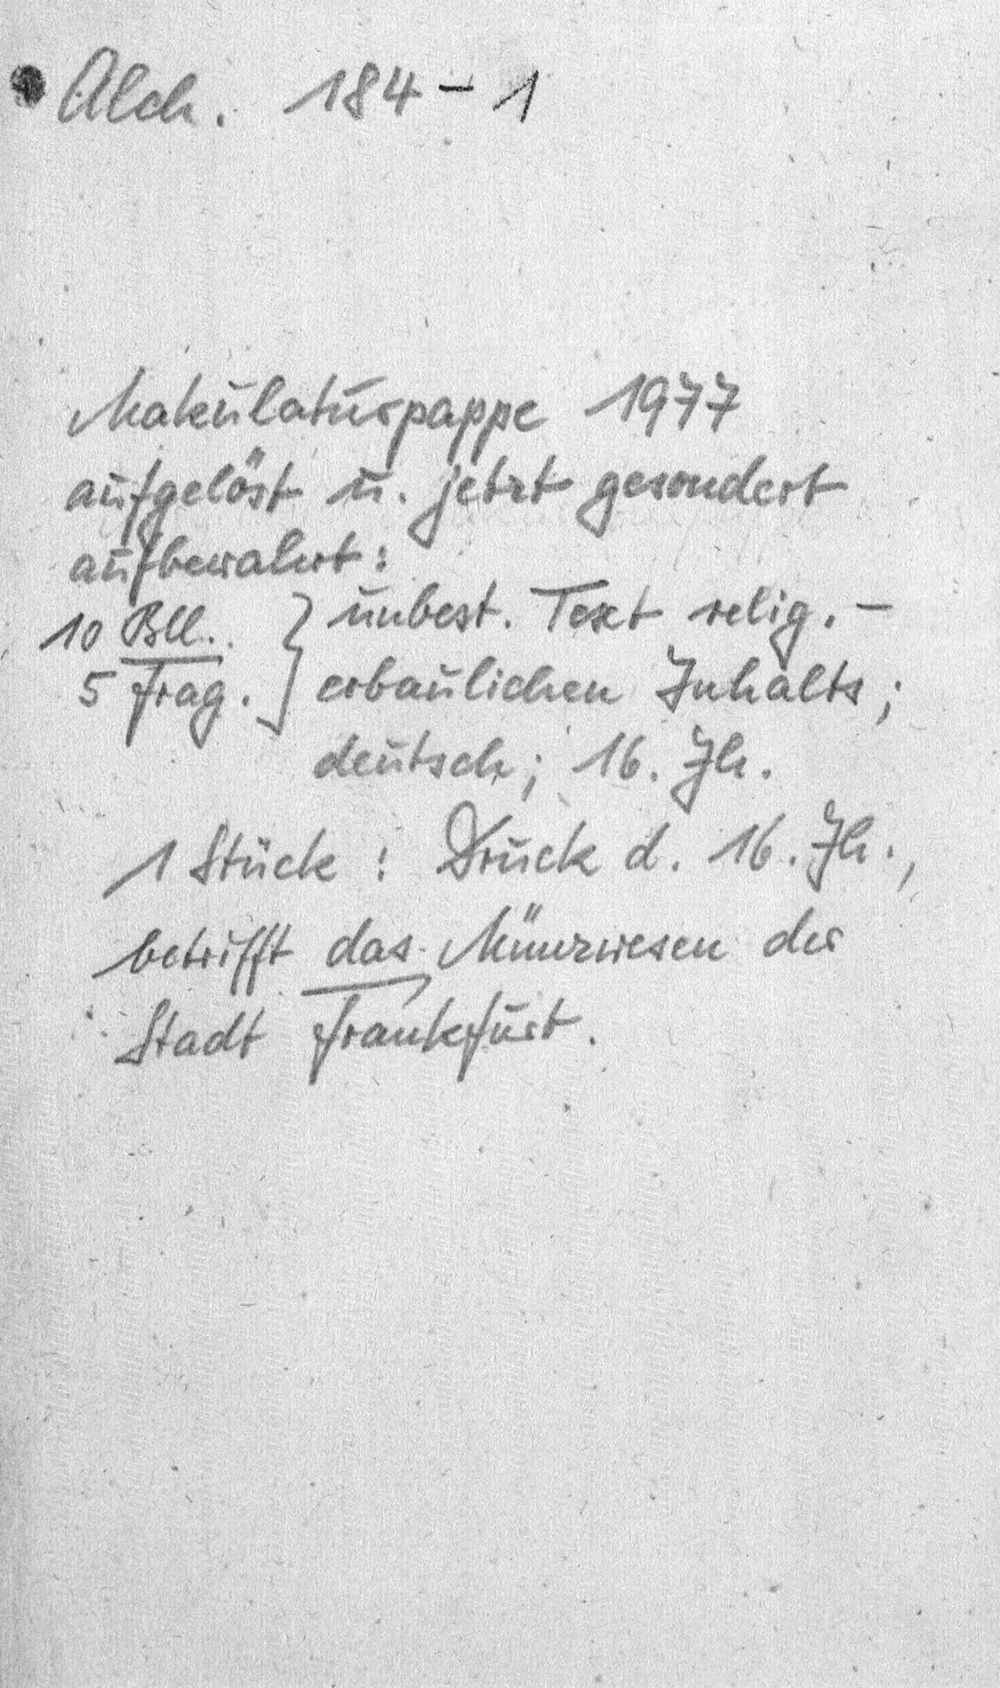 Alch. 184-1
Makulaturpappe 1977
aufgelöst u. jetzt gesondert
aufbewahrt:
10 Bll. } unbest. Text relig.-
5 Frag. } erbaulichen Inhalts;
deutsch; 16. Jh.
1 Stück: Druck d. 16. Jh.,
betrifft das Münzwesen der
Stadt Frankfurt.